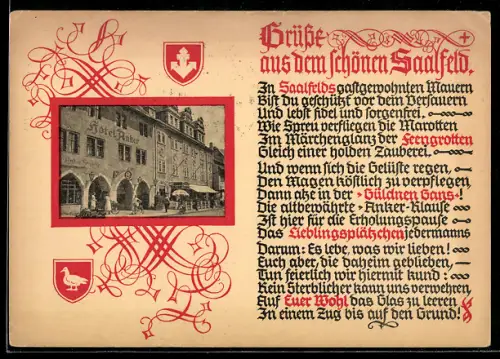 Grüße
aus dem schönen Saalfeld.
In Saalfelds gastgewohnten Mauern
Bist du geschützt vor dem Versauern
Und lebst fidel und sorgenfrei.
Wie Spreu verfliegen die Marotten
Im Märchenglanz der Feengrotten
Gleich einer holden Zauberei.
Und wenn sich die Gelüste regen,
Den Magen köstlich zu verpflegen,
Dann atze in der "Güldnen Gans"!
Die altbewährte "Anker-Klause"
Ist hier für die Erholungspause
Das Lieblingsplätzchen jedermanns
Darum: Es lebe, was wir lieben!
Euch aber, die daheim geblieben,
Tun feierlich wir hiermit kund:
Kein Sterblicher kann uns verwehren,
Auf Euer Wohl das Glas zu leeren
In einem Zug bis auf den Grund!
Hotel Anker